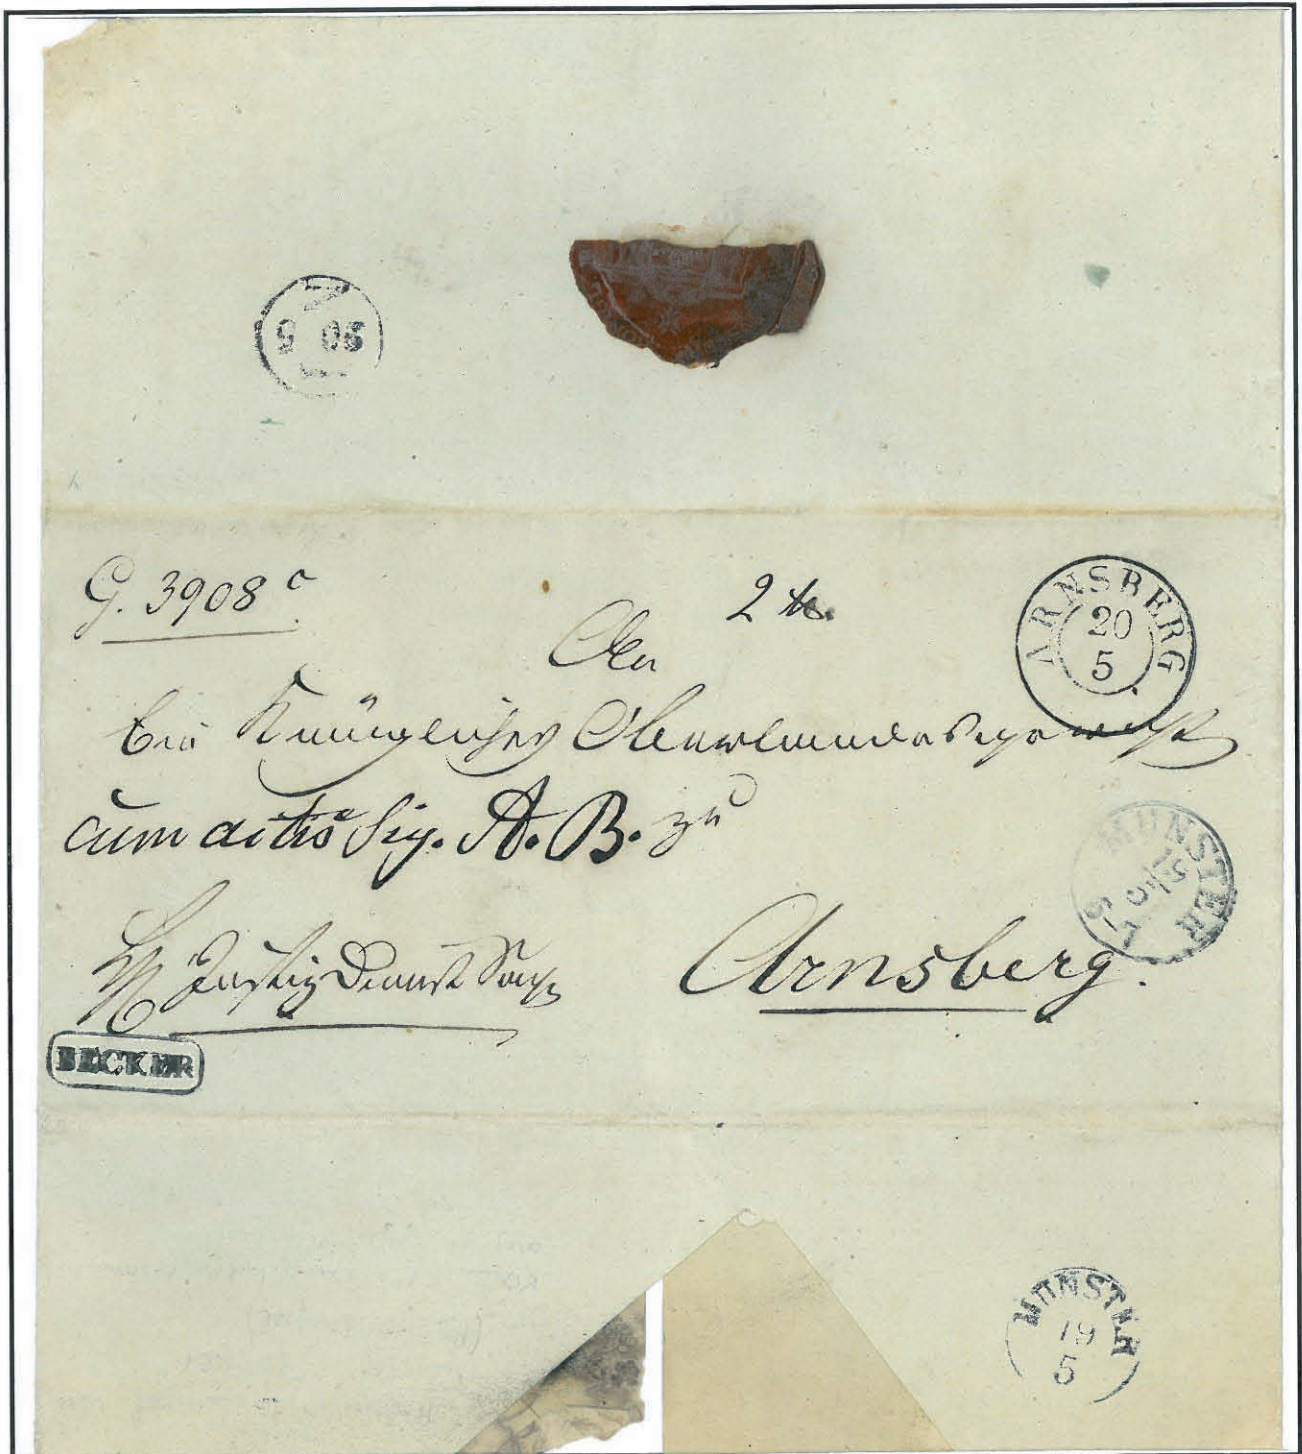 20 5
G. 3908 c
2 th.
An
ein Königliches Oberlandesgericht
cum actis Sig. A. B. zu
Justiz Dienst Sache
Arnsberg.
ARNSBERG
20
5
MÜNSTER
BECKER
MÜNSTER
19
5